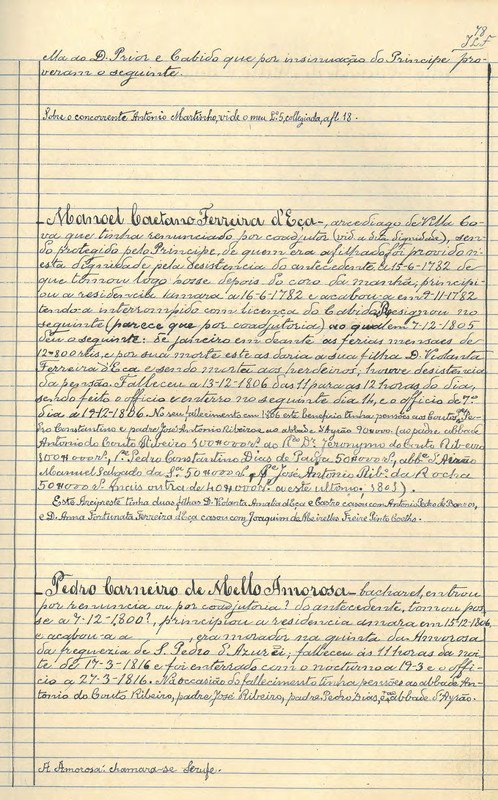 78
J L F
ella ao D. Prior e Cabido que por insinuação do Principe pro-
veram o seguinte.
Sobre o concorrente António Martinho, vide o meu L.º 5, collegiada, a fl. 18.
Manoel Caetano Ferreira d'Eça, arcediago de Villa Co-
va que tinha renunciado por coadjutor (vid. a dita dignidade), sen-
do protegido pelo Principe, de quem era afilhado, foi provido n-
esta dignidade pela desistencia do antecedente, a 15-6-1782 de
que tomou logo posse depois do coro da manhã, principi-
ou a residencia amara a 16-6-1782 e acabou a em 7-11-1782
tendo a interrompido com licença do Cabido. Resignou no
seguinte (parece que por coadjutoria) ao qual em 7-12-1805
deu o seguinte: de janeiro em deante as ferias mensaes de
12#800 reis, e por sua morte este as daria a sua filha D. Violanta
Ferreira d'Eça e sendo morta aos herdeiros; houve desistencia
da pensão. Falleceu a 13-12-1806 das 11 para as 12 horas do dia,
sendo feito o officio e enterro no seguinte dia 14, e o officio de 7.º
dia a 19-12-1806. No seu fallecimento em 1806 este beneficio tinha pensões aos Coutos, P.e Pe-
dro Constantino e padre José Antonio Ribeiro e ao abbade d'Ayrão 90#000 (ao padre abbade
Antonio do Couto Ribeiro 100#000 rs. ao R.do Dr. Jeronymo do Couto Ribeiro
100#000 rs., P.e Pedro Constantino Dias de Paiva 50#000 rs., abb.e d'Airão
Manuel Salgado da 50#000 rs., P.e José Antonio Rib.º da Rocha
50#000 rs. (mais outra de 40#000 rs. a este ultimo, 1801).
Este Arcipreste tinha duas filhas D. Violanta Amalia d'Eça e Castro casou com Antonio Pedro de Barros,
e D. Anna Fortunata Ferreira d'Eça casou com Joaquim de Meirelles Freire Pinto Coelho.
Pedro Carneiro de Mello Amorosa, bacharel, entrou
por renuncia ou por coadjutoria? do antecedente, tomou pos-
se a 7-12-1800?, principiou a residencia amara em 15-12-1806,
e acabou-a a , era morador na quinta da Amorosa
da freguezia de S. Pedro d'Azurei; falleceu ás 11 horas da noi-
te de 17-3-1816 e foi enterrado com o nocturno a 19-3 e o offi-
cio a 27-3-1816. Na occasião do fallecimento tinha pensões ao abbade An-
tonio do Couto Ribeiro, padre José Ribeiro, padre Pedro Dias, e abbade d'Ayrão.
A Amorosa: chamara-se Serufe.